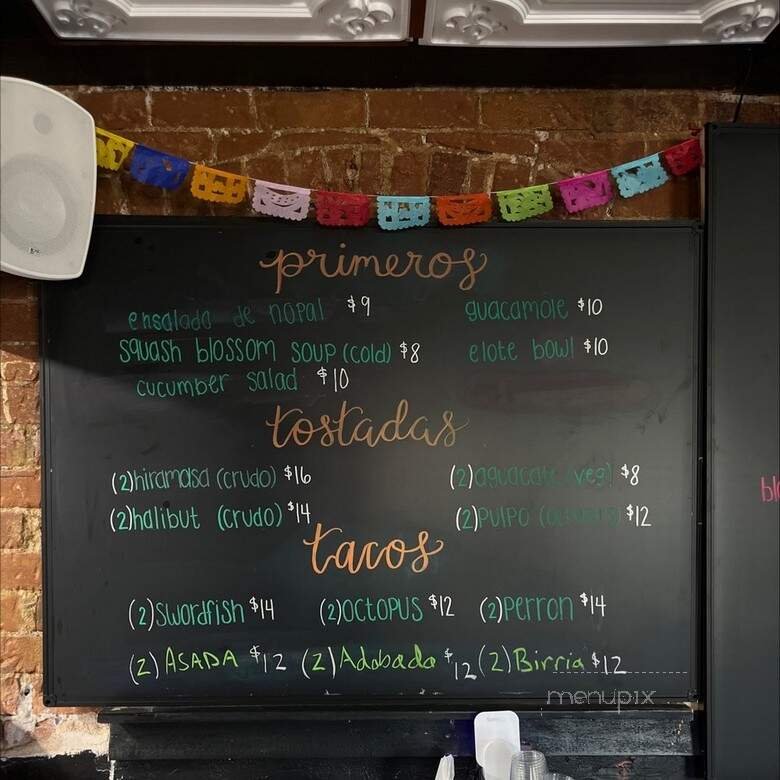 primeros
ensalada de nopal $9 guacamole $10
squash blossom soup (cold) $8 elote bowl $10
cucumber salad $10
tostadas
(2) hiramasa (crudo) $16 (2) aguacate (veg) $8
(2) halibut (crudo) $14 (2) pulpo (octopus) $12
tacos
(2) swordfish $14 (2) octopus $12 (2) perron $14
(2) ASADA $12 (2) Adobada $12 (2) Birria $12
menupix
bl